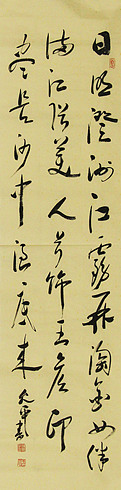 日照澄洲江霧開淘金女伴
滿江隈美人首飾王侯印
盡是沙中浪底來